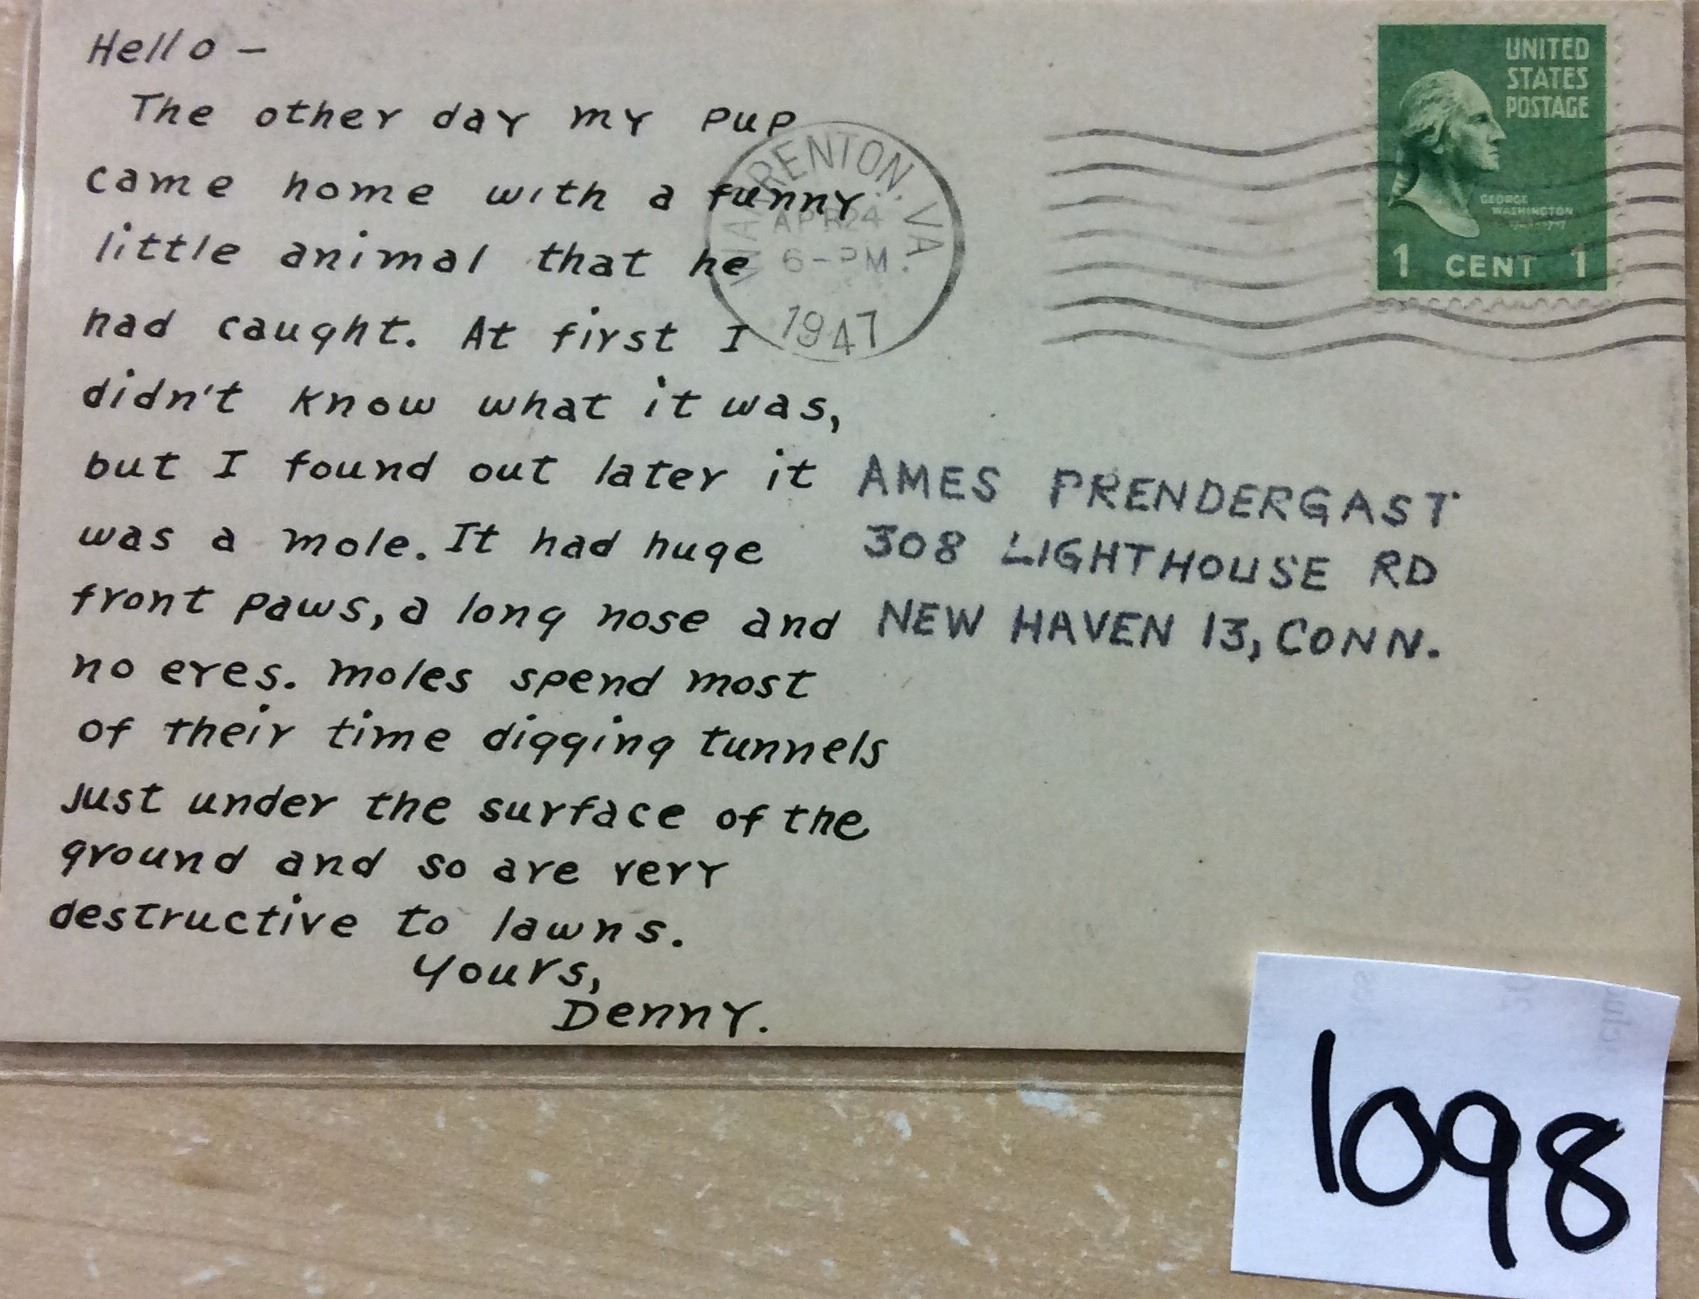 Hello –
The other day my pup
came home with a funny
little animal that he
had caught. At first I
didn't know what it was,
but I found out later it
was a mole. It had huge
front paws, a long nose and
no eyes. moles spend most
of their time digging tunnels
just under the surface of the
ground and so are very
destructive to lawns.
Yours,
Denny.
WARRENTON, VA.
APR 24
6-PM.
1947
UNITED
STATES
POSTAGE
GEORGE
WASHINGTON
1 CENT 1
AMES PRENDERGAST
308 LIGHTHOUSE RD
NEW HAVEN 13, CONN.
1098